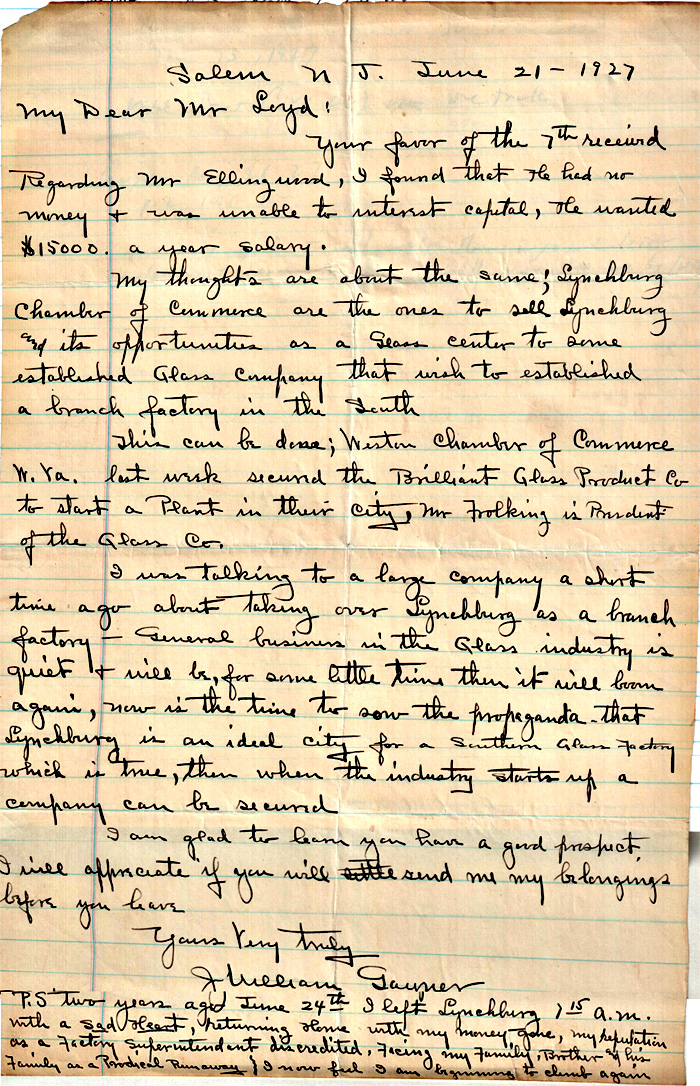 Salem N J. June 21 - 1927
My Dear Mr Loyd!
Your favor of the 7th received
Regarding Mr Ellingwood, I found that He had no
money & was unable to interest capital, He wanted
$15000. a year salary.
My thoughts are about the same; Lynchburg
Chamber of Commerce are the ones to sell Lynchburg
and its opportunities as a Glass center to some
established Glass Company that wish to established
a branch factory in the South
This can be done; Weston Chamber of Commerce
W. Va. last week secured the Brilliant Glass Product Co
to start a Plant in their city, Mr Frolking is President
of the Glass Co.
I was talking to a large company a short
time ago about taking over Lynchburg as a branch
factory - General business in the Glass industry is
quiet & will be, for some little time then it will boom
again, now is the time to sow the propaganda - that
Lynchburg is an ideal city for a Southern Glass Factory
which is true, then when the industry starts up a
company can be secured
I am glad to learn you have a good prospect,
I will appreciate if you will send me my belongings
before you leave
Yours Very truly
J William Gayner
P.S two years ago June 24th I left Lynchburg 7 15 a.m.
with a Sad Heart, Returning Home with my money gone, my reputation
as a Factory Superintendent discredited, Facing my Family, Brother & his
Family as a Prodical Runaway } I now feel I am beginning to climb again